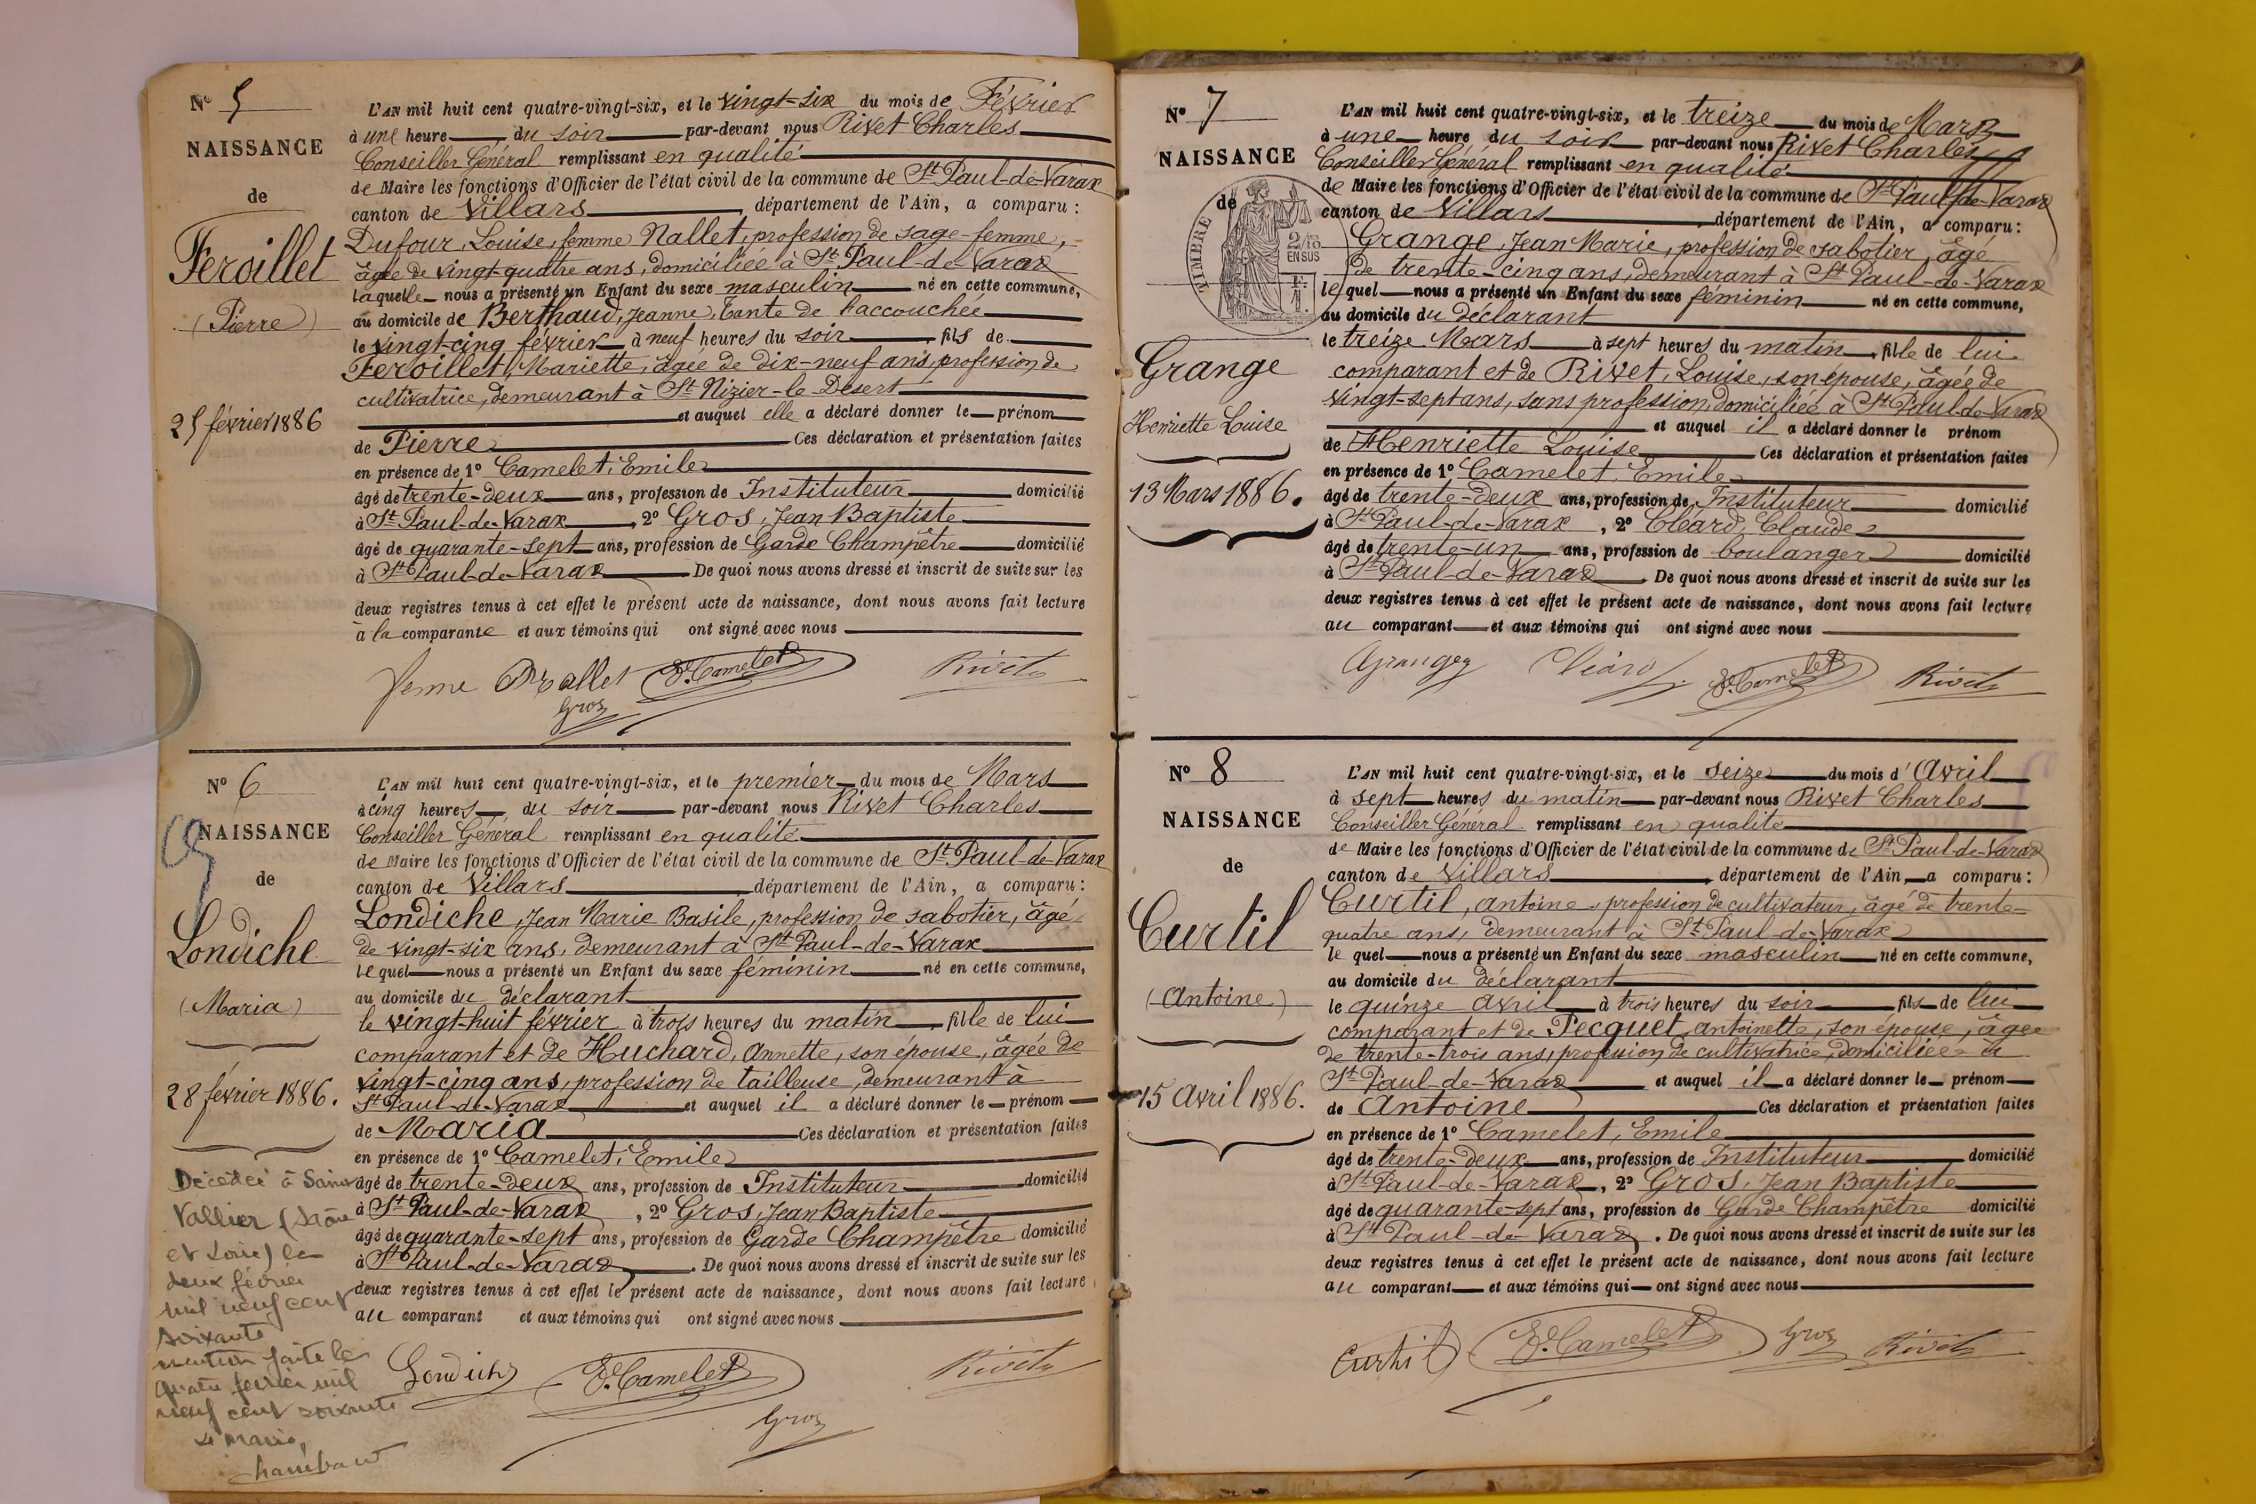 N° 5
NAISSANCE
de
Feroillet
(Pierre)
25 février 1886
L'AN mil huit cent quatre-vingt-six, et le vingt-six du mois de Février
à une heure du soir par-devant nous Rivet Charles
Conseiller Général remplissant en qualité
de Maire les fonctions d'Officier de l'état civil de la commune de St Paul-de-Varax
canton de Villars, département de l'Ain, a comparu :
Dufour, Louise, femme Nallet, profession de sage-femme,
âgée de vingt-quatre ans, domiciliée à St Paul-de-Varax
laquelle nous a présenté un Enfant du sexe masculin né en cette commune,
au domicile de Berthaud, Jeanne, tante de l'accouchée
le vingt-cinq février à neuf heures du soir, fils de
Feroillet, Mariette, âgée de dix-neuf ans, profession de
cultivatrice, demeurant à St Nizier-le-Desert
et auquel elle a déclaré donner le prénom
de Pierre Ces déclaration et présentation faites
en présence de 1° Camelet, Emile
âgé de trente-deux ans, profession de Instituteur domicilié
à St Paul-de-Varax, 2° Gros, Jean Baptiste
âgé de quarante-sept ans, profession de Garde Champêtre domicilié
à St Paul-de-Varax De quoi nous avons dressé et inscrit de suite sur les
deux registres tenus à cet effet le présent acte de naissance, dont nous avons fait lecture
à la comparante et aux témoins qui ont signé avec nous
femme Nallet E. Camelet Rivet
Gros
N° 6
NAISSANCE
de
Londiche
(Maria)
28 février 1886.
Décédée à Saint
Vallier (Saône
et Loire) le
deux février
mil neuf cent
soixante
mention faite le
quatre février mil
neuf cent soixante
Le Maire,
L'AN mil huit cent quatre-vingt-six, et le premier du mois de Mars
à cinq heures du soir par-devant nous Rivet Charles
Conseiller Général remplissant en qualité
de Maire les fonctions d'Officier de l'état civil de la commune de St Paul-de-Varax
canton de Villars, département de l'Ain, a comparu :
Londiche, Jean Marie Basile, profession de sabotier, âgé
de vingt-six ans, demeurant à St Paul-de-Varax
lequel nous a présenté un Enfant du sexe féminin né en cette commune,
au domicile du déclarant
le vingt-huit février à trois heures du matin, fille de lui
comparant et de Huchard, Annette, son épouse, âgée de
vingt-cinq ans, profession de tailleuse, demeurant à
St Paul-de-Varax et auquel il a déclaré donner le prénom
de Maria Ces déclaration et présentation faites
en présence de 1° Camelet, Emile
âgé de trente-deux ans, profession de Instituteur domicilié
à St Paul-de-Varax, 2° Gros, Jean Baptiste
âgé de quarante-sept ans, profession de Garde Champêtre domicilié
à St Paul-de-Varax. De quoi nous avons dressé et inscrit de suite sur les
deux registres tenus à cet effet le présent acte de naissance, dont nous avons fait lecture
au comparant et aux témoins qui ont signé avec nous
Londiche E. Camelet Rivet
Gros
N° 7
NAISSANCE
de
TIMBRE
2/10
EN SUS
Grange
Henriette Louise
13 Mars 1886.
L'AN mil huit cent quatre-vingt-six, et le treize du mois de Mars
à une heure du soir par-devant nous Rivet Charles
Conseiller Général remplissant en qualité
de Maire les fonctions d'Officier de l'état civil de la commune de St Paul-de-Varax
canton de Villars, département de l'Ain, a comparu :
Grange, Jean Marie, profession de sabotier, âgé
de trente-cinq ans, demeurant à St Paul-de-Varax
lequel nous a présenté un Enfant du sexe féminin né en cette commune,
au domicile du déclarant
le treize Mars à sept heures du matin, fille de lui
comparant et de Rivet, Louise, son épouse, âgée de
vingt-sept ans, sans profession, domiciliée à St Paul-de-Varax
et auquel il a déclaré donner le prénom
de Henriette Louise Ces déclaration et présentation faites
en présence de 1° Camelet, Emile
âgé de trente-deux ans, profession de Instituteur domicilié
à St Paul-de-Varax, 2° Cléard, Claude
âgé de trente-un ans, profession de boulanger domicilié
à St Paul-de-Varax. De quoi nous avons dressé et inscrit de suite sur les
deux registres tenus à cet effet le présent acte de naissance, dont nous avons fait lecture
au comparant et aux témoins qui ont signé avec nous
Grange Cléard E. Camelet Rivet
N° 8
NAISSANCE
de
Curtil
(Antoine)
15 Avril 1886.
L'AN mil huit cent quatre-vingt-six, et le seize du mois d'Avril
à sept heures du matin par-devant nous Rivet Charles
Conseiller Général remplissant en qualité
de Maire les fonctions d'Officier de l'état civil de la commune de St Paul-de-Varax
canton de Villars, département de l'Ain, a comparu :
Curtil, Antoine, profession de cultivateur, âgé de trente-
quatre ans, demeurant à St Paul-de-Varax
lequel nous a présenté un Enfant du sexe masculin né en cette commune,
au domicile du déclarant
le quinze Avril à trois heures du soir, fils de lui
comparant et de Pecquet, Antoinette, son épouse, âgée
de trente-trois ans, profession de cultivatrice, domiciliée à
St Paul-de-Varax et auquel il a déclaré donner le prénom
de Antoine Ces déclaration et présentation faites
en présence de 1° Camelet, Emile
âgé de trente-deux ans, profession de Instituteur domicilié
à St Paul-de-Varax, 2° Gros, Jean Baptiste
âgé de quarante-sept ans, profession de Garde Champêtre domicilié
à St Paul-de-Varax. De quoi nous avons dressé et inscrit de suite sur les
deux registres tenus à cet effet le présent acte de naissance, dont nous avons fait lecture
au comparant et aux témoins qui ont signé avec nous
Curtil E. Camelet Gros Rivet